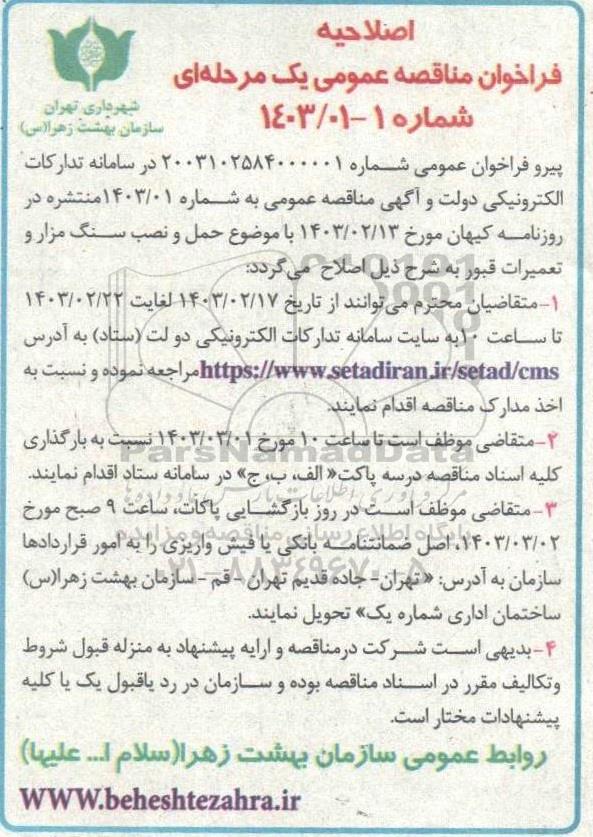 اصلاحیه
فراخوان مناقصه عمومی یک مرحله‌ای
شماره ۱-۱۴۰۳/۰۱
شهرداری تهران
سازمان بهشت زهرا(س)
پیرو فراخوان عمومی شماره ۲۰۰۳۱۰۲۵۸۴۰۰۰۰۰۱ در سامانه تدارکات
الکترونیکی دولت و آگهی مناقصه عمومی به شماره ۱۴۰۳/۰۱منتشره در
روزنامه کیهان مورخ ۱۴۰۳/۰۲/۱۳ با موضوع حمل و نصب سنگ مزار و
تعمیرات قبور به شرح ذیل اصلاح می‌گردد:
۱-متقاضیان محترم می‌توانند از تاریخ ۱۴۰۳/۰۲/۱۷ لغایت ۱۴۰۳/۰۲/۲۲
تا ساعت ۱۰به سایت سامانه تدارکات الکترونیکی دو لت (ستاد) به آدرس
https://www.setadiran.ir/setad/cms مراجعه نموده و نسبت به
اخذ مدارک مناقصه اقدام نمایند.
۲-متقاضی موظف است تا ساعت ۱۰ مورخ ۱۴۰۳/۰۳/۰۱ نسبت به بارگذاری
کلیه اسناد مناقصه درسه پاکت« الف، ب، ج» در سامانه ستاد اقدام نمایند.
۳-متقاضی موظف است در روز بازگشایی پاکات، ساعت ۹ صبح مورخ
۱۴۰۳/۰۳/۰۲، اصل ضمانتنامه بانکی یا فیش واریزی را به امور قراردادها
سازمان به آدرس: «تهران- جاده قدیم تهران - قم - سازمان بهشت زهرا(س)
ساختمان اداری شماره یک» تحویل نمایند.
۴-بدیهی است شرکت درمناقصه و ارایه پیشنهاد به منزله قبول شروط
وتکالیف مقرر در اسناد مناقصه بوده و سازمان در رد یاقبول یک یا کلیه
پیشنهادات مختار است.
روابط عمومی سازمان بهشت زهرا(سلام ا... علیها)
WWW.beheshtezahra.ir
ParsNamadData
پایگاه اطلاع رسانی مناقصه و مزایده
۰۲۱-۸۸۳۴۹۶۷۰-۵